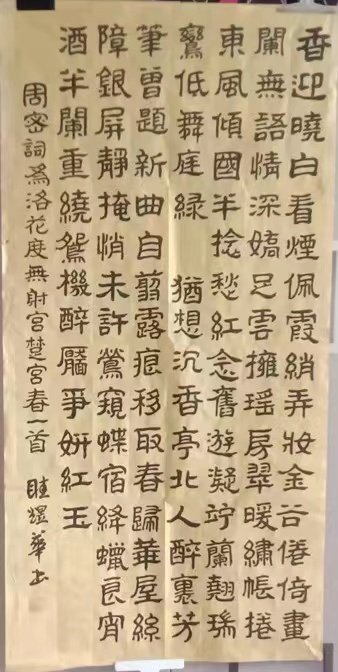 香迎曉白看煙佩霞綃弄妝金谷倦倚畫
闌無語情深嬌足雲擁瑤房翠暖繡帳捲
東風傾國半捻愁紅念舊遊凝竚蘭翹瑞
鸞低舞庭綠 猶想沉香亭北人醉裏芳
筆曾題新曲自翦露痕移取春歸華屋絲
障銀屏靜掩悄未許鶯窺蝶宿絳蠟良宵
酒半闌重繞鴛機醉靨爭妍紅玉
周密詞爲洛花度無射宮楚宮春一首 華